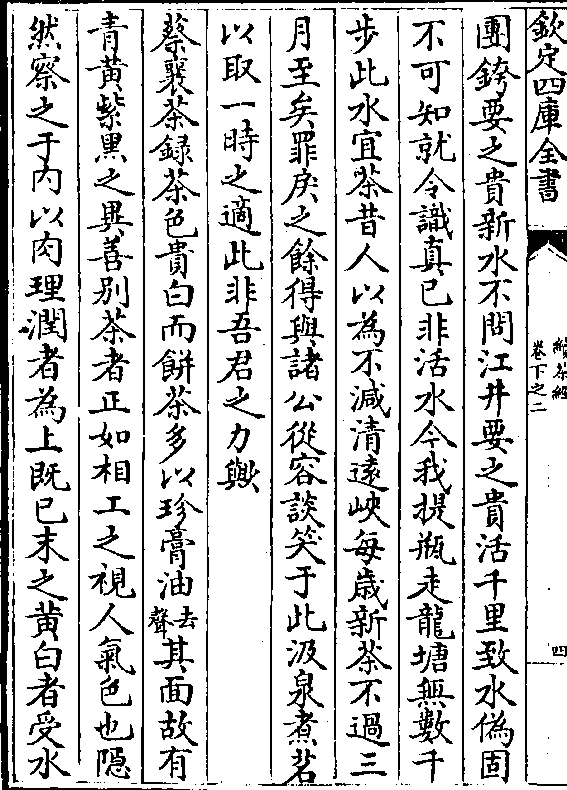 欽定四庫全書
續茶經
卷下之二
四
團銙要之貴新水不問江井要之貴活千里致水僞固
不可知就令識真已非活水今我提瓶走龍塘無數千
步此水宜茶昔人以為不減清遠峽每歲新茶不過三
月至矣罪戾之餘得與諸公從容談笑于此汲泉煮茗
以取一時之適此非吾君之力歟
蔡襄茶録茶色貴白而餅茶多以珍膏油去聲其面故有
青黃紫黑之異善别茶者正如相工之視人氣色也隠
然察之于内以肉理潤者為上既已末之黃白者受水